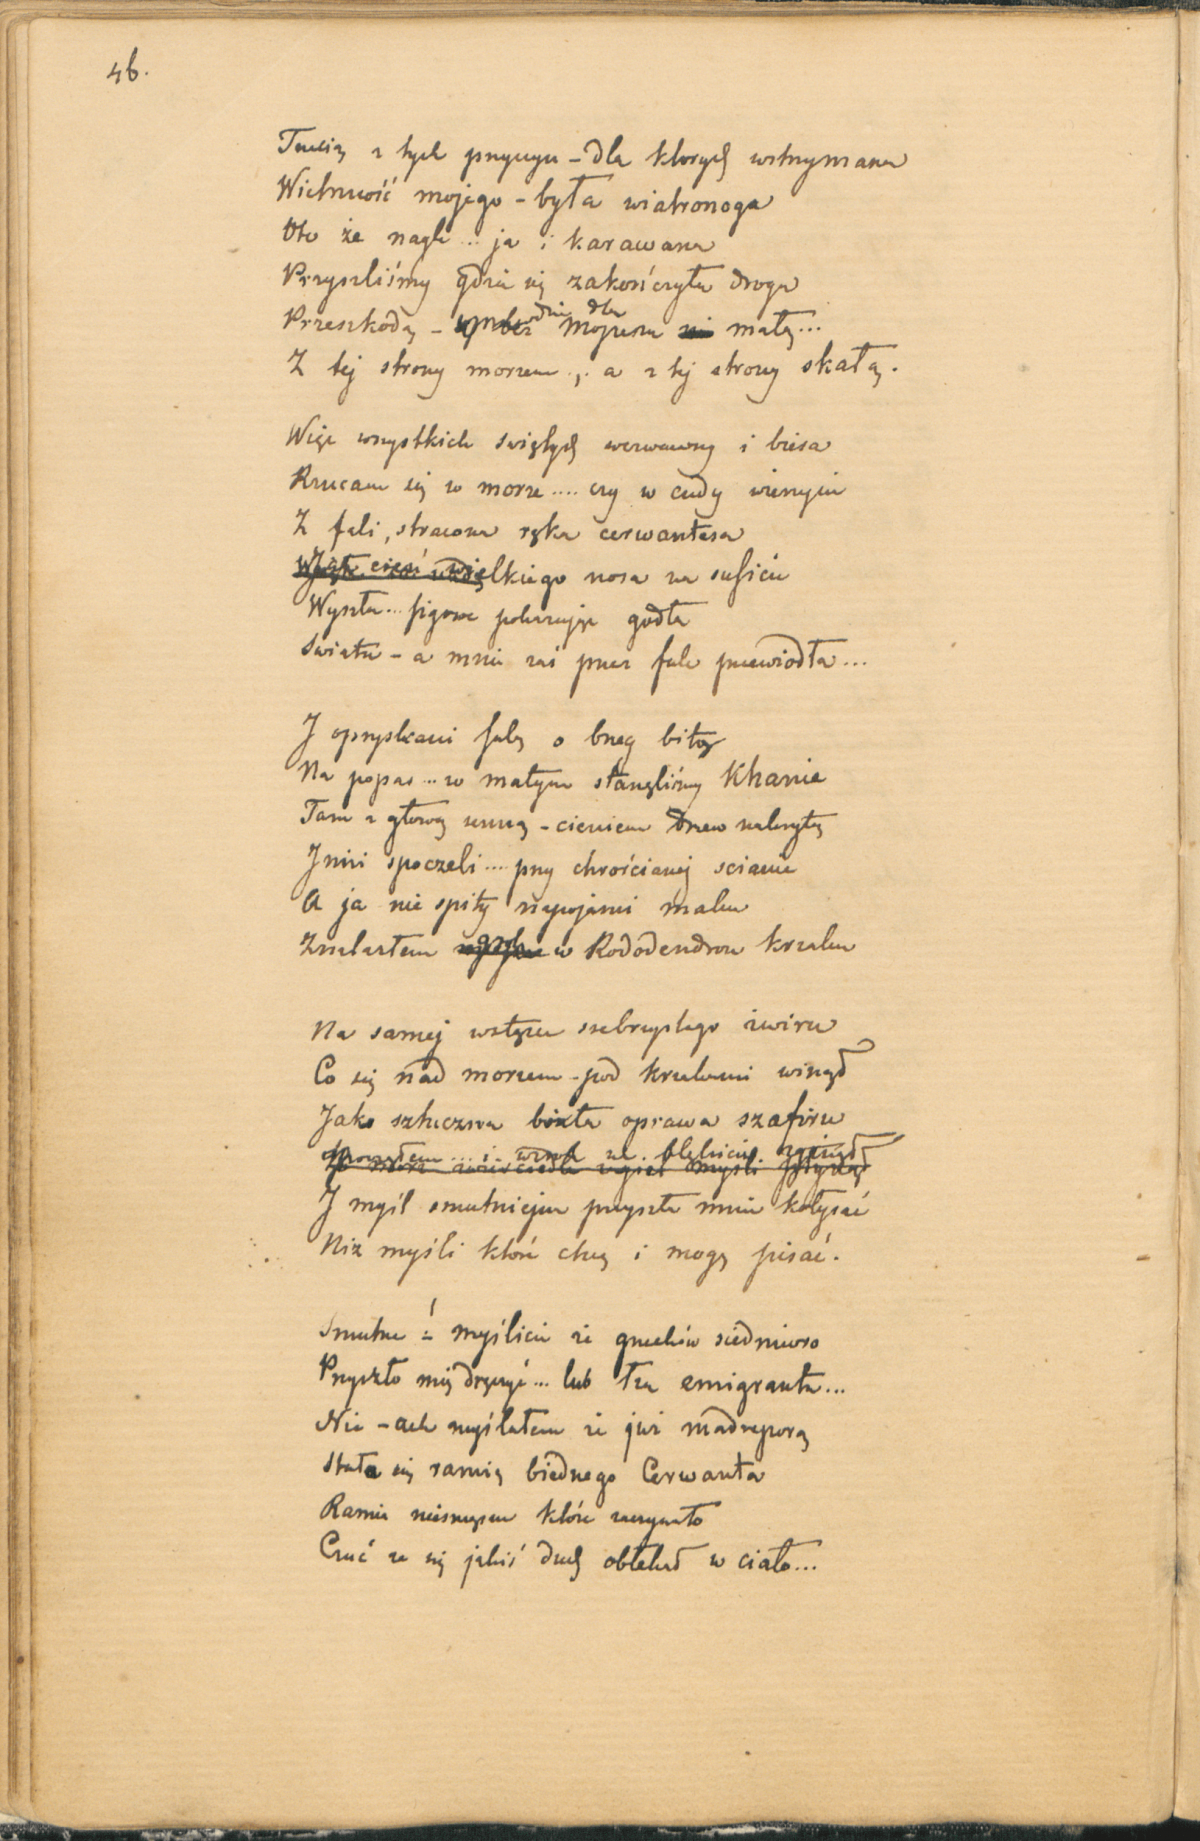 46.
Trzecią z tych przyczyn – dla ktorych wstrzymana
Wichrowość mojego – była wiatronoga
Oto że nagle... ja i karawana
Przyszliśmy gdzie się zakończyła droga
Przeszkodą – dla Mojżesza małą...
Z tej strony morzem, a z tej strony skałą.
Więc wszystkich swiętych wezwawszy i biesa
Rzucam się w morze.... czy w cudy wierzycie
Z fali, stracona ręka cerwantesa
wielkiego nosa na suficie
Wyszła... figowe pokazując godła
Swiatu – a mnie zaś przez fale przewiodła...
I opryskani falą o brzeg bitą
Na popas... w małym stanęliśmy Khanie
Tam z głową senną – cieniem drzew nakrytą
Inni spoczeli.... przy chrościanej scianie
A ja nie spiły napojami maku
Znalazłem w Rododendron krzaku
Na samej wstęzce srebrnystego żwiru
Co się nad morzem – pod krzakami winął
Jako sztuczna biała oprawa szafiru
I myśl smutniejsza przyszła mnie kołysać
Niż myśli które chcę i mogę pisać.
Smutne – myślicie że grzechów siedmioro
Przyszło mię dręczyć... lub łza emigranta...
Nie – ach myślałem że już madreporą
Stało się ramię biednego Cerwanta
Ramie nieszczęsne które zaczynało
Czuć że się jakiś duch oblekał w ciało...